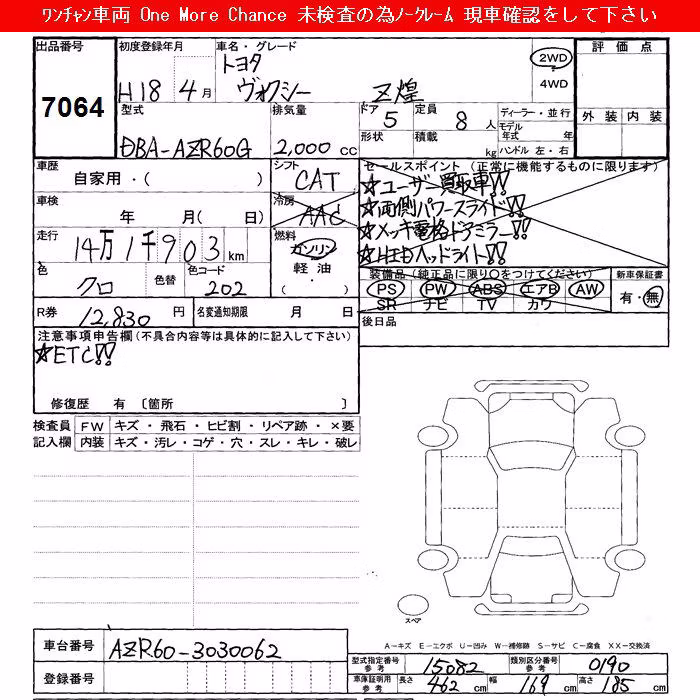 ﾜﾝﾁｬﾝ車両 One More Chance 未検査の為ﾉｰｸﾚｰﾑ 現車確認をして下さい
出品番号 初度登録年月 車名・グレード 評価点
7064 H18 4月 トヨタ ヴォクシー Z煌 2WD 4WD
型式 排気量 ドア 定員 ディーラー・並行 外装 内装
DBA-AZR60G 2,000cc 5 8人 モデル年式 年
形状 積載 kg ハンドル 左・右
車歴 シフト セールスポイント (正常に機能するものに限ります)
自家用・( ) CAT ☆ユーザー買取車!!
車検 冷房 ☆両側パワースライド!!
年 月(日) AAC ☆メッキ電格ドアミラー!!
走行 燃料 ☆HIDヘッドライト!!
14万1千903km ガソリン 軽油・
色 色替 色コード 装備品(純正品に限り○をつけてください) 新車保証書
クロ 202 PS PW ABS エアB AW 有・無
SR ナビ TV カワ
R券 12,830円 名変通知期限 月 日 後日品
注意事項申告欄(不具合内容等は具体的に記入して下さい)
☆ETC!!
修復歴 有 〔箇所 〕
検査員 FW キズ・飛石・ヒビ割・リペア跡・×要
記入欄 内装 キズ・汚レ・コゲ・穴・スレ・キレ・破レ
スペア
A－キズ E－エクボ U－凹み W－補修跡 S－サビ C－腐食 XX－交換済
車台番号 AZR60-3030062
登録番号
型式指定番号 参考 15082 類別区分番号 参考 0190
車庫証明用 参考 長さ 462 cm 幅 169 cm 高さ 185 cm